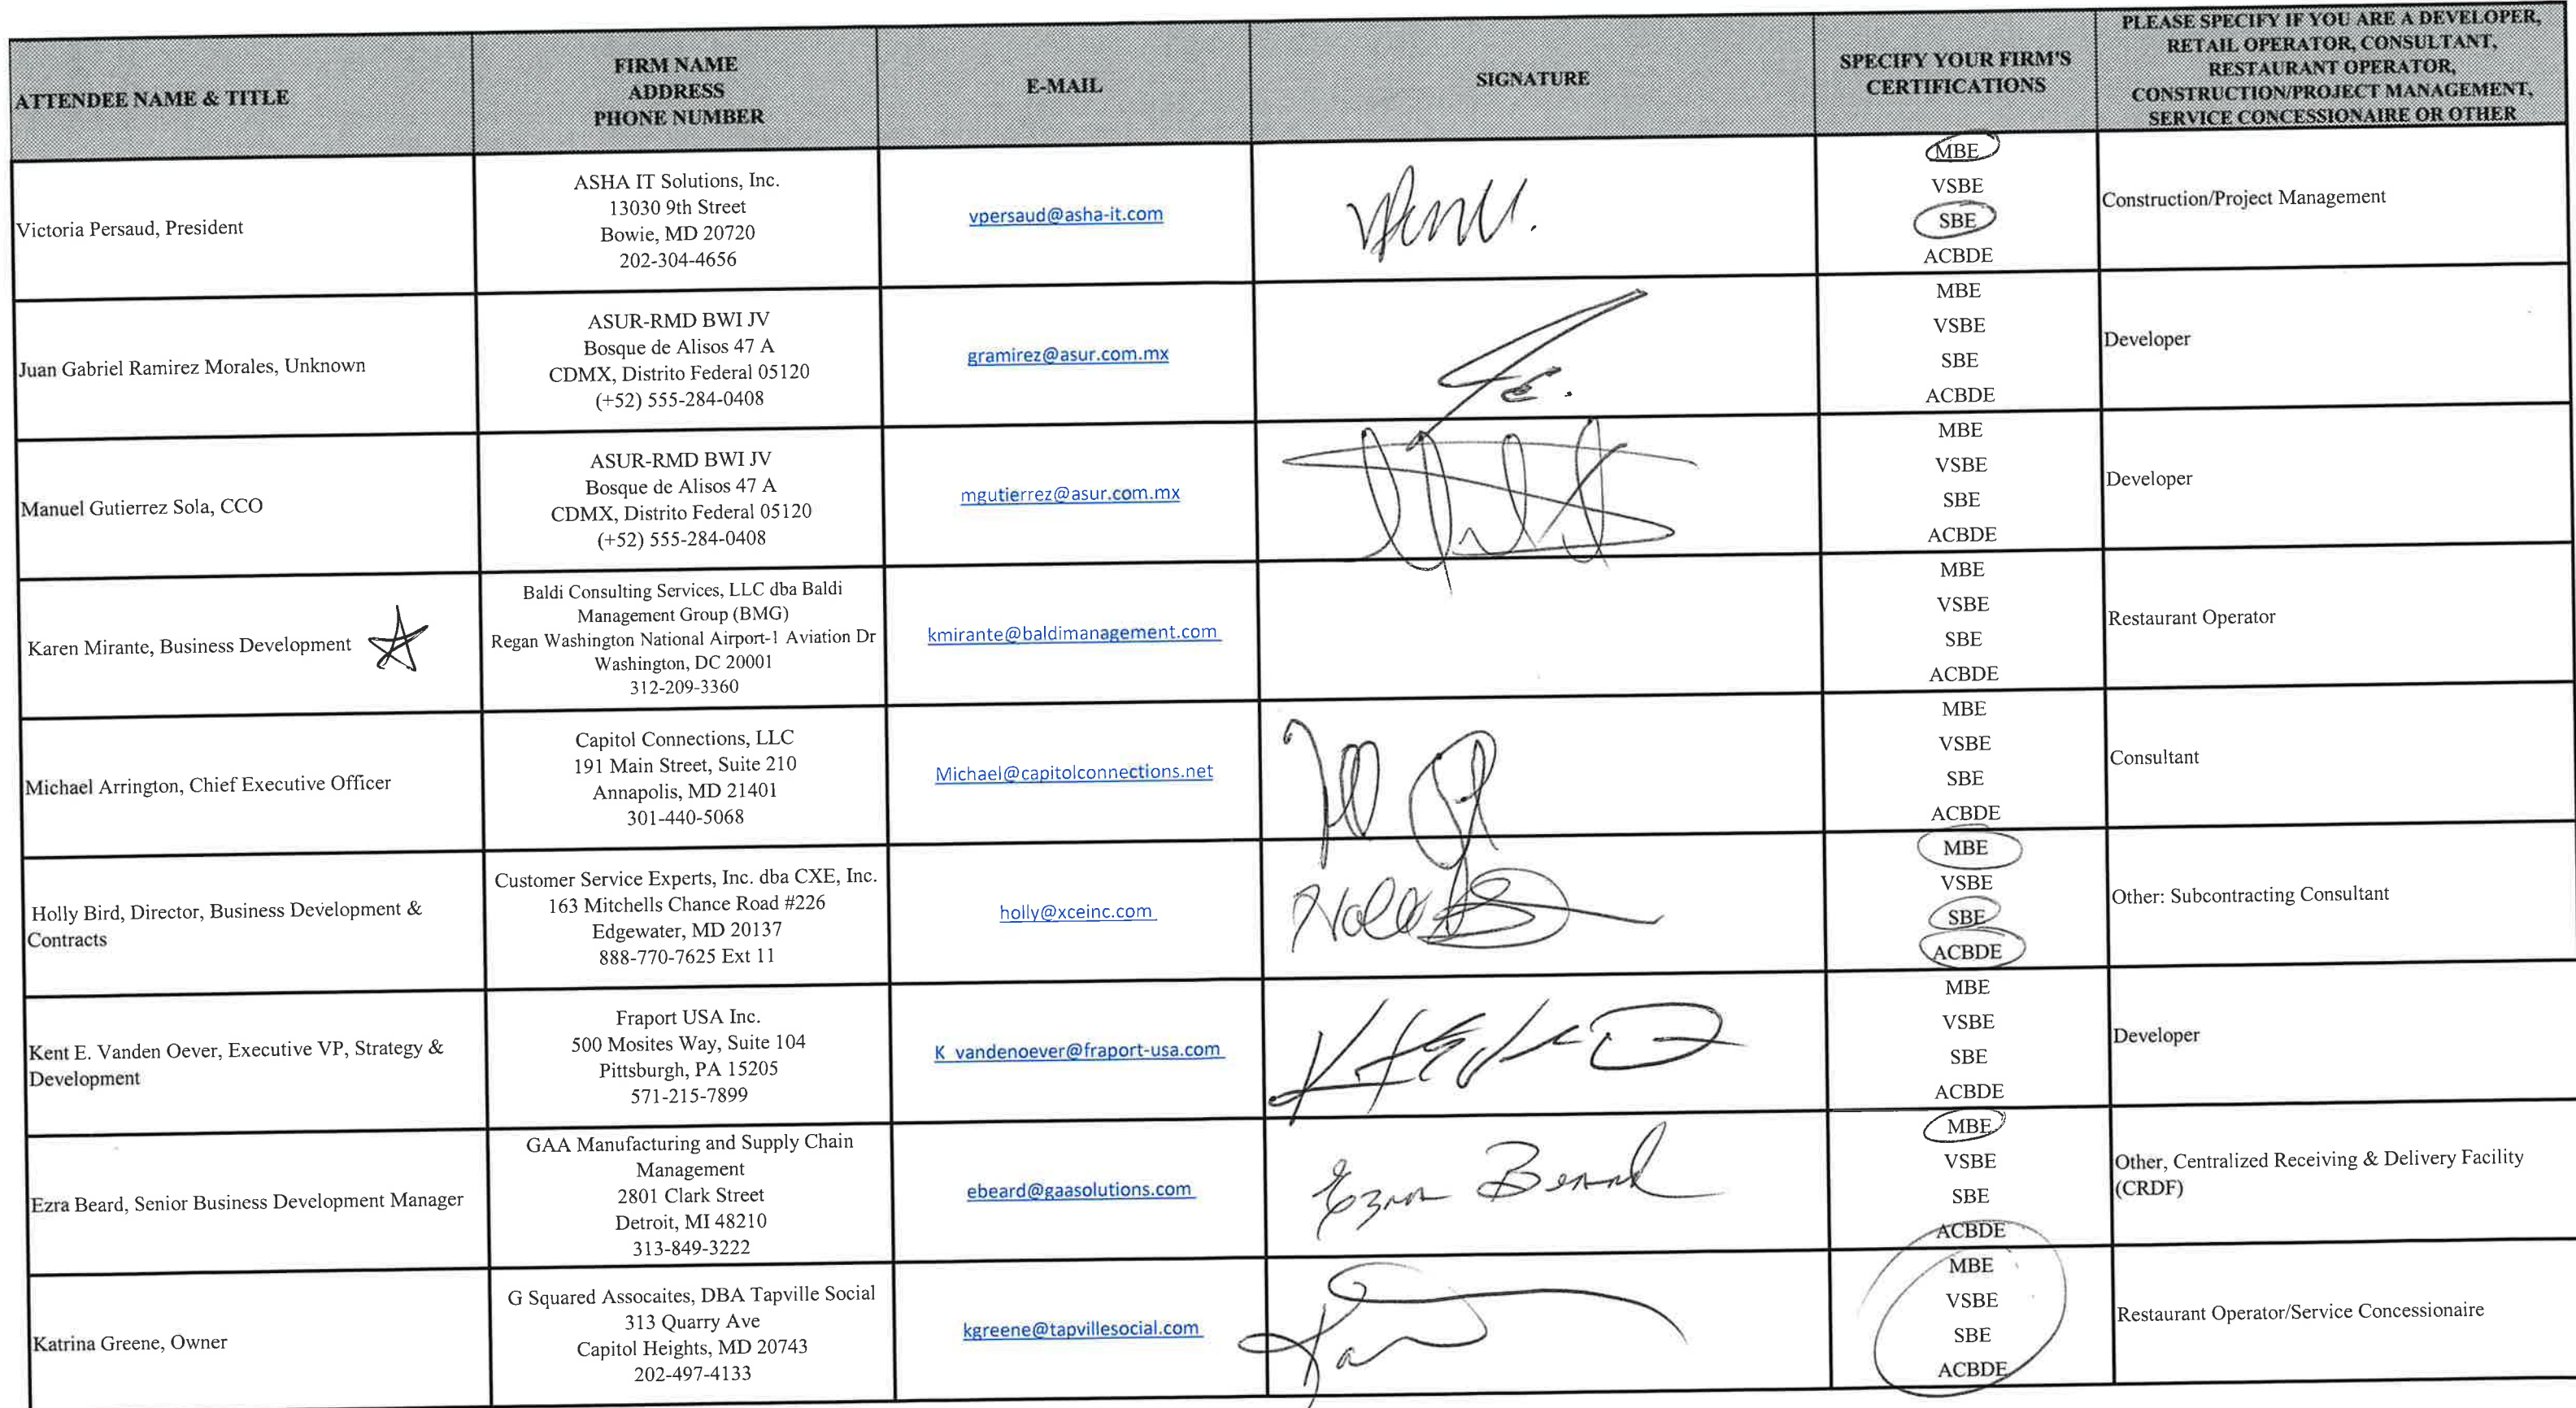 ATTENDEE NAME & TITLE
FIRM NAME
ADDRESS
PHONE NUMBER
E-MAIL
SIGNATURE
SPECIFY YOUR FIRM'S
CERTIFICATIONS
PLEASE SPECIFY IF YOU ARE A DEVELOPER,
RETAIL OPERATOR, CONSULTANT,
RESTAURANT OPERATOR,
CONSTRUCTION/PROJECT MANAGEMENT,
SERVICE CONCESSIONAIRE OR OTHER
Victoria Persaud, President
ASHA IT Solutions, Inc.
13030 9th Street
Bowie, MD 20720
202-304-4656
vpersaud@asha-it.com
MBE
VSBE
SBE
ACBDE
Construction/Project Management
Juan Gabriel Ramirez Morales, Unknown
ASUR-RMD BWI JV
Bosque de Alisos 47 A
CDMX, Distrito Federal 05120
(+52) 555-284-0408
gramirez@asur.com.mx
MBE
VSBE
SBE
ACBDE
Developer
Manuel Gutierrez Sola, CCO
ASUR-RMD BWI JV
Bosque de Alisos 47 A
CDMX, Distrito Federal 05120
(+52) 555-284-0408
mgutierrez@asur.com.mx
MBE
VSBE
SBE
ACBDE
Developer
Karen Mirante, Business Development
Baldi Consulting Services, LLC dba Baldi
Management Group (BMG)
Regan Washington National Airport-1 Aviation Dr
Washington, DC 20001
312-209-3360
kmirante@baldimanagement.com
MBE
VSBE
SBE
ACBDE
Restaurant Operator
Michael Arrington, Chief Executive Officer
Capitol Connections, LLC
191 Main Street, Suite 210
Annapolis, MD 21401
301-440-5068
Michael@capitolconnections.net
MBE
VSBE
SBE
ACBDE
Consultant
Holly Bird, Director, Business Development &
Contracts
Customer Service Experts, Inc. dba CXE, Inc.
163 Mitchells Chance Road #226
Edgewater, MD 20137
888-770-7625 Ext 11
holly@xceinc.com
MBE
VSBE
SBE
ACBDE
Other: Subcontracting Consultant
Kent E. Vanden Oever, Executive VP, Strategy &
Development
Fraport USA Inc.
500 Mosites Way, Suite 104
Pittsburgh, PA 15205
571-215-7899
K_vandenoever@fraport-usa.com
MBE
VSBE
SBE
ACBDE
Developer
Ezra Beard, Senior Business Development Manager
GAA Manufacturing and Supply Chain
Management
2801 Clark Street
Detroit, MI 48210
313-849-3222
ebeard@gaasolutions.com
Ezra Beard
MBE
VSBE
SBE
ACBDE
Other, Centralized Receiving & Delivery Facility
(CRDF)
Katrina Greene, Owner
G Squared Assocaites, DBA Tapville Social
313 Quarry Ave
Capitol Heights, MD 20743
202-497-4133
kgreene@tapvillesocial.com
MBE
VSBE
SBE
ACBDE
Restaurant Operator/Service Concessionaire